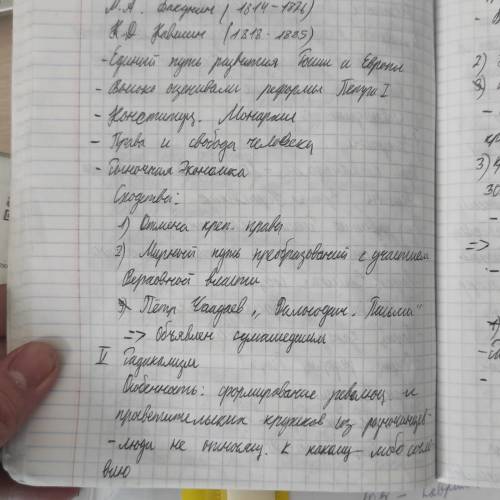 М.А. Бакунин (1814-1876)
К.Д Кавелин (1818-1885)
- Единый путь развития России и Европы
- Высоко оценивали реформы Петра I
- Конституц. Монархия
- Права и свободы человека
- Рыночная Экономика
Сходства:
1) Отмена креп. права
2) Мирный путь преобразований с участием
Верховной власти
Пётр Чаадаев „ Письма"
=> Объявлен сумашедшим
V Радикализм
Особенность: формирование революц. и
просветительских кружков из разночинцев-
- люди не относящ. к какому-либо сосло
вию
2)
3)
=>